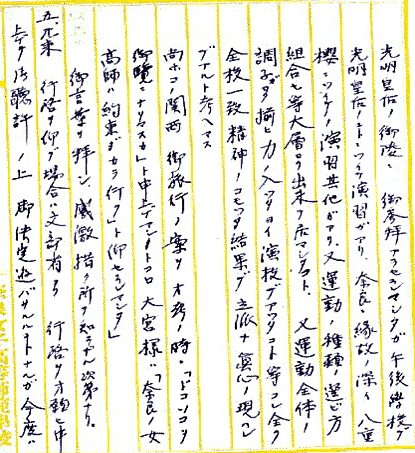 光明皇后ノ御陵ニ御参拝アラセラレマシタガ午後學校デ
光明皇后ノトイフ演習ガアリ、奈良ニ縁故ノ深イ八重
櫻トイフノ演習其他ガアリ又運動ノ種類ノ選ビ方
組合セ等大層ヨク出来テ居マシタシ、又運動全体ノ
調子ガ揃ヒ力ノ入ツタヨイ演技デアツタコト等コレ全ク
全校一致精神ノコモツタ結果デ立派ナ眞心ノ現レ
デアルト考ヘマス
尚ホコノ関西御旅行ノ案ヲオ考ノ時、「ドコソコヲ
御覧ニナリマスカ」ト申上ゲマシタトコロ大宮様ハ「奈良ノ女
高師ハ約束ダカラ行ク」ト仰セラレマシタ」
御言葉ヲ拝シ、感激措ク所ヲ知ラナイ次第ナリ。
五、元来 行啓ヲ仰グ場合ハ文部省ヨリ 行啓ヲオ願ヒ申
上ゲ御聴許ノ上 御決定遊バサルルノデアルガ今度ハ